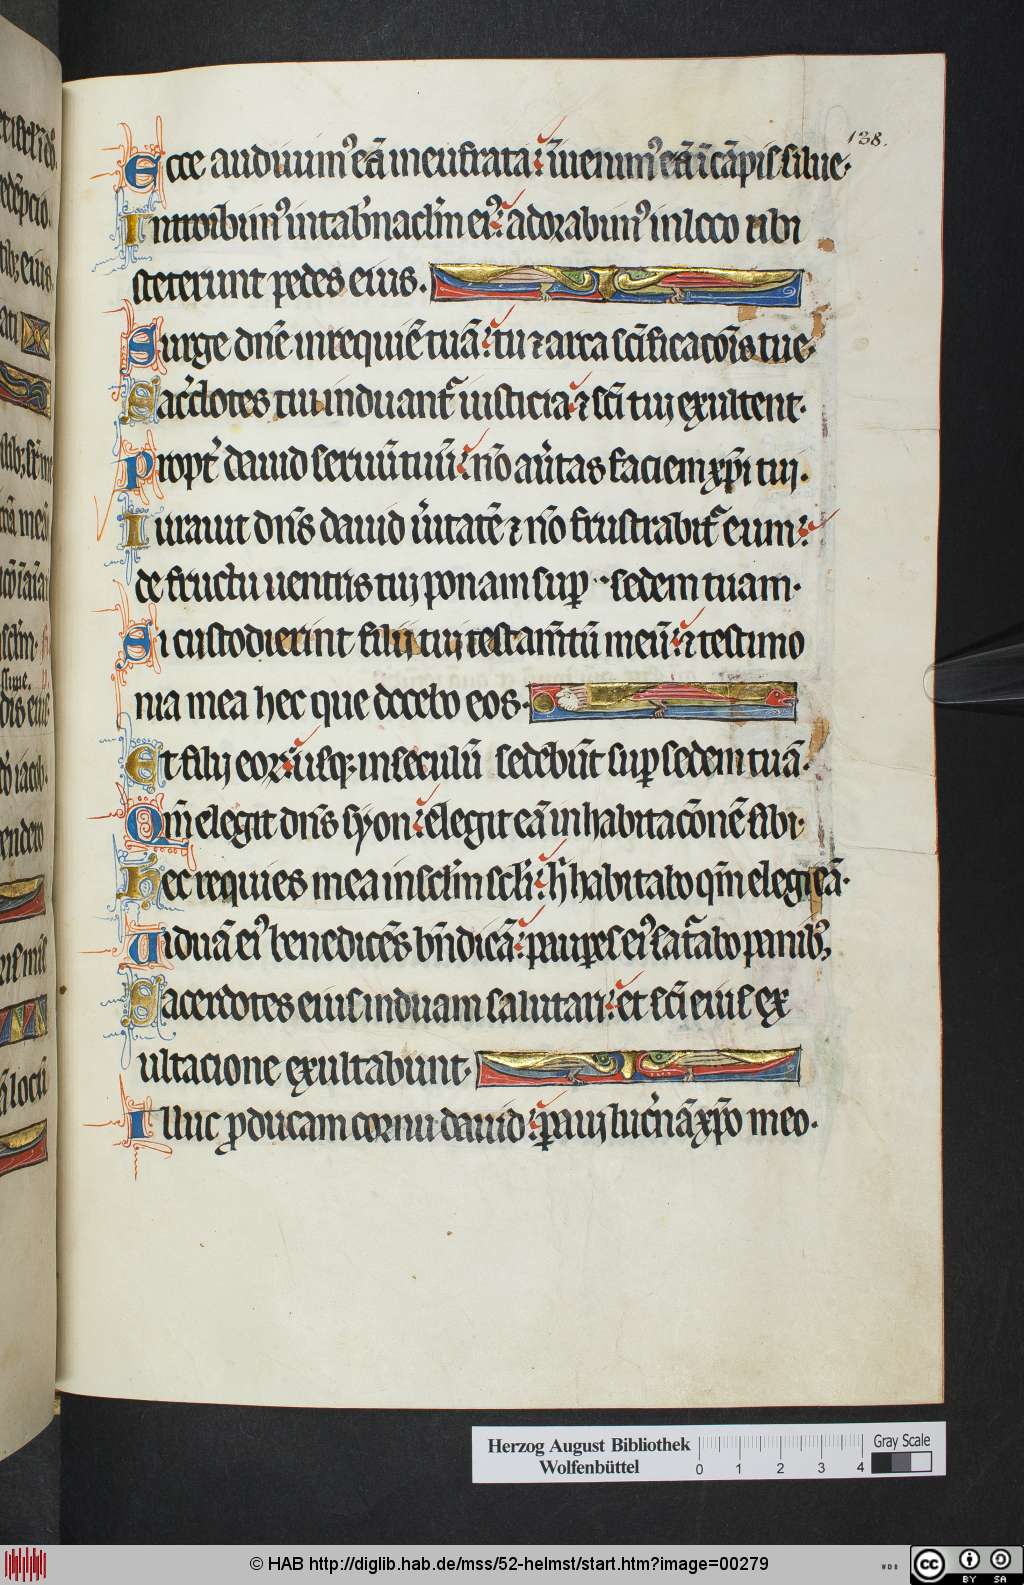 138.
Ecce audiuim⁹ eā in eufrata: īuenim⁹ eā ī cāpis silue·
Introibim⁹ in tab̓naclm̄ ei⁹: adorabim⁹ in loco ubi
steterunt pedes eius.
Surge dn̄e in requiē tuā: tu ⁊ arca sc̄ificacōis tue·
Sac̓dotes tui induant᷑ iusticia: ⁊ sc̄i tui exultent·
Propt̓ dauid seruū tuū: nō au̓tas faciem xp̄i tui·
Iurauit dn̄s dauid u̓itatē ⁊ nō frustrabit᷑ eum:
de fructu uentris tui ponam suꝑ sedem tuam·
Si custodierint filii tui testam̄tū meū: ⁊ testimo
nia mea hec que docebo eos·
Et filij eoꝝ: usqꝫ in seculū sedebūt suꝑ sedem tuā·
Qm̄ elegit dn̄s syon: elegit eā in habitacōnē sibi·
Hec requies mea in sclm̄ scl̄i: h̓ habitabo qm̄ elegi eā·
Uiduā ei⁹ benedicēs bn̄dicā: pauꝑes ei⁹ sat᷑abo panibꝫ
Sacerdotes eius induam salutari: et sc̄i eius ex
ultacione exultabunt·
Illuc ꝓducam cornu dauid: ꝑaui luc̓nā xp̄o meo·
Herzog August Bibliothek
Wolfenbüttel
0 1 2 3 4
Gray Scale
© HAB http://diglib.hab.de/mss/52-helmst/start.htm?image=00279
WDB
cc BY SA